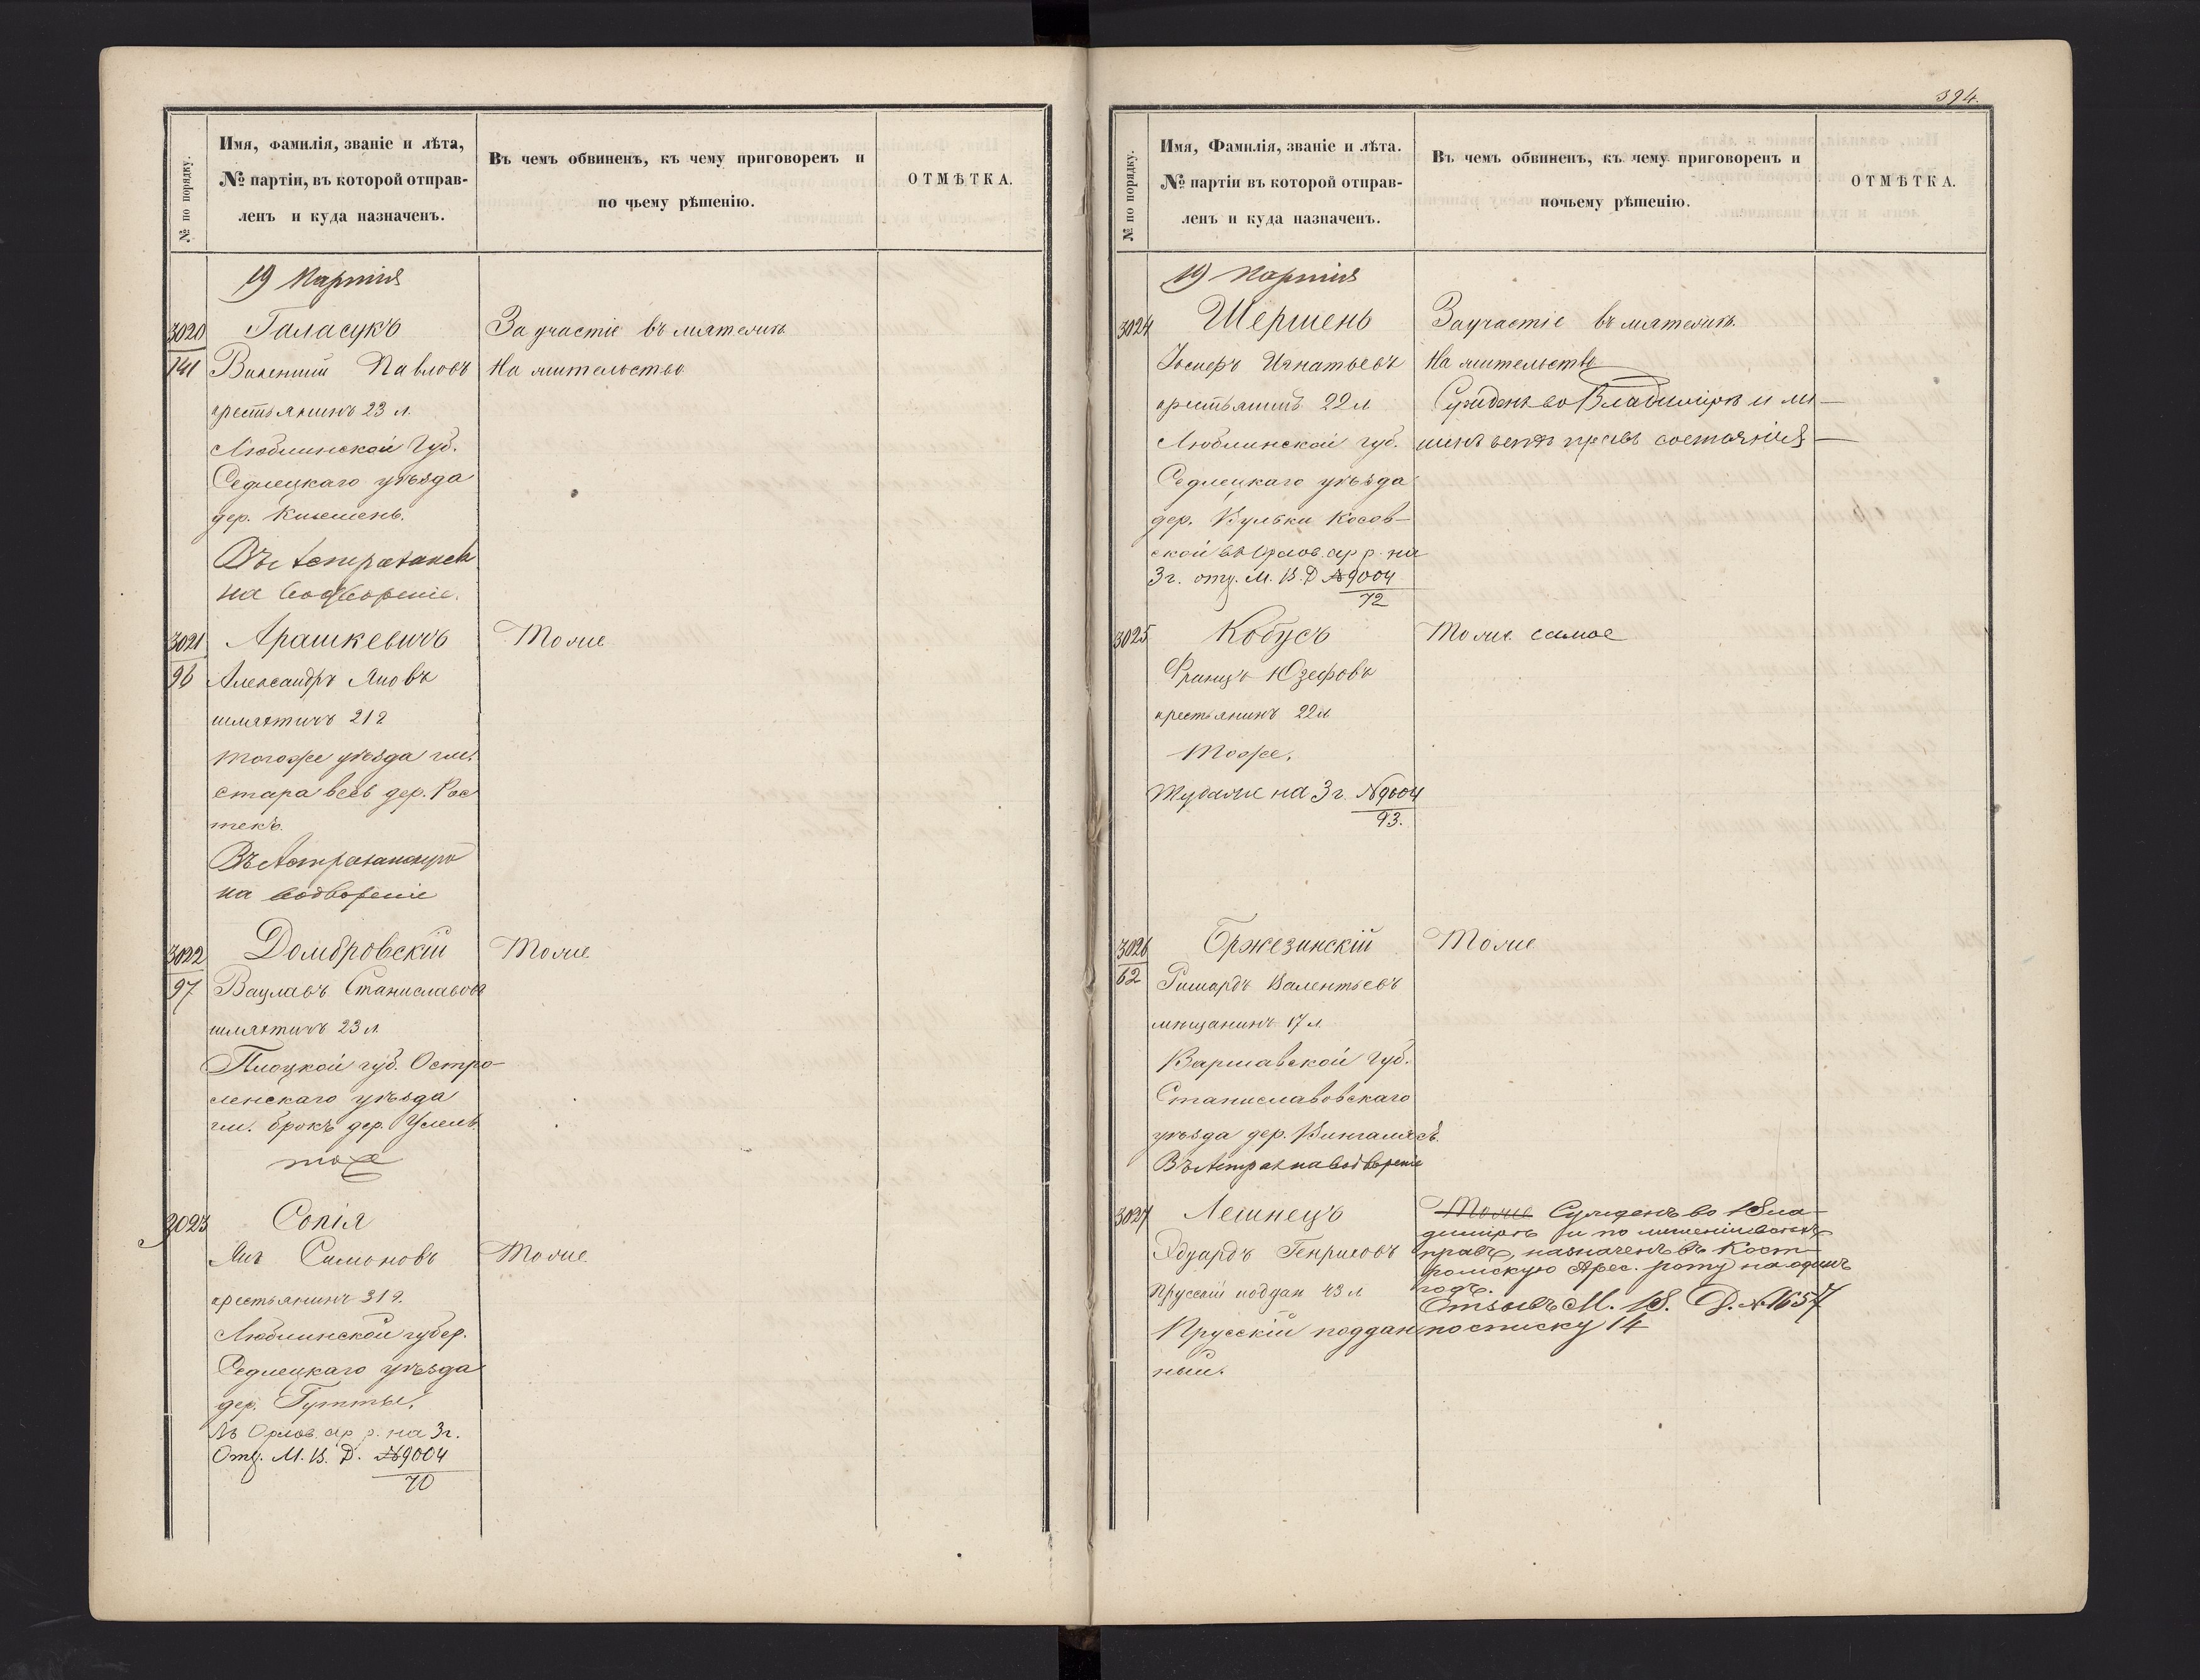 № по порядку.
Имя, фамилія, званіе и лѣта,
№ партіи, въ которой отправ-
ленъ и куда назначенъ.
Въ чемъ обвиненъ, къ чему приговоренъ и
по чьему рѣшенію.
ОТМѢТКА.
19 Партія
3020
141
Галасукъ
Валентій Павловъ
крестьянинъ 23 л.
Люблинской Губ.
Седлецкаго уѣзда
дер.
на водвореніе.
За участіе въ мятежѣ
На жительство
3021
96
Арашкевичъ
Александръ Яновъ
шляхтичъ 21 г
тогоже уѣзда гм.
стара весь дер. Рос
текъ.
Въ Астраханскую
на водвореніе
Тоже
3022
97
Домбровскій
Вацлавъ Станиславовъ
шляхтичъ 23 л
Плоцкой губ. Остро-
ленскаго уѣзда
гм. Брокъ дер.
тоже
Тоже
3023
Сопія
Янъ Симоновъ
крестьянинъ 31 г.
Люблинской губер.
Седлецкаго уѣзда
дер. Гутты.
Въ Орлов. ар р. на 3 г.
Отц. М. В. Д. №9004
70
Тоже
394.
№ по порядку.
Имя, Фамилія, званіе и лѣта.
№ партіи въ которой отправ-
ленъ и куда назначенъ.
Въ чемъ обвиненъ, къ чему приговоренъ и
почьему рѣшенію.
ОТМѢТКА.
19 Партія
3024
Шершень
Іосифъ Игнатьевъ
крестьянинъ 22 л
Люблинской губ.
Седлецкаго уѣзда
дер. Вульки Косов-
ской въ Орлов. ар р. на
3 г. отц. М. В. Д №9004
72
За участіе въ мятежѣ.
На жительство
Сужденъ во Владимірѣ и ли-
шенъ всѣхъ правъ состоянія
3025
Кобусъ
Францъ Юзефовъ
крестьянинъ 22 л
Тоже.
Туда же на 3 г. №9004
93.
Тоже самое
3026
62
Бржезинскій
Ришардъ Валентьевъ
мѣщанинъ 17 л
Варшавской Губ.
Станиславовскаго
уѣзда дер.
Въ Астрах на водвореніе
Тоже
3027
Лешнецъ
Эдуардъ Генриховъ
Прусскій поддан 43 л
Прусскій поддан
ный.
Тоже Сужденъ во Вла-
димірѣ и по лишеніи всѣхъ
правъ, назначенъ въ Кост-
ромскую Арес. роту на одинъ
годъ.
Отзывъ М. В. Д. № 1657
по списку 14